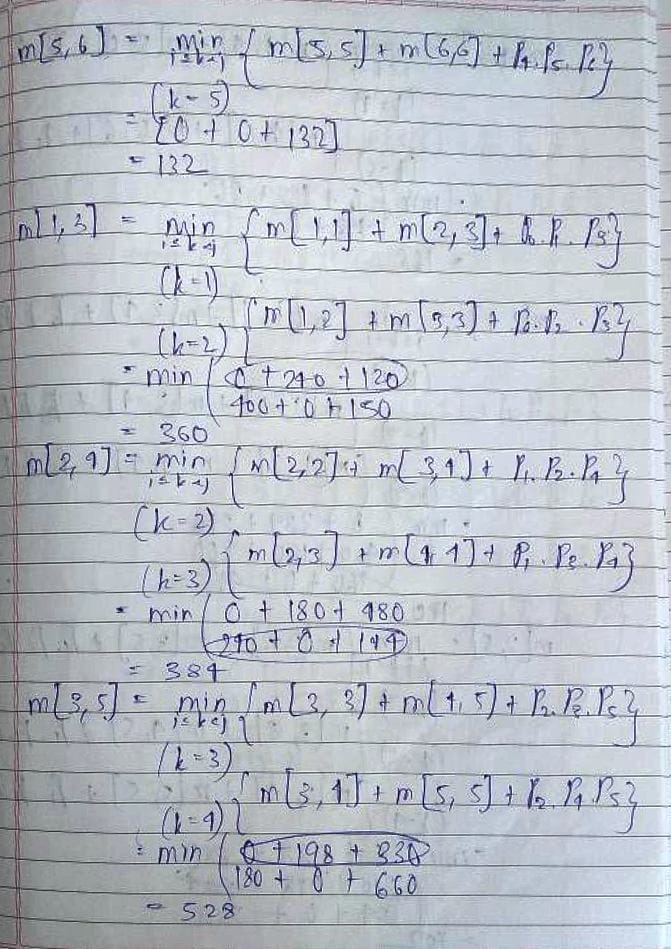 m[5,6] = min i≤k<j { m[5,5] + m[6,6] + P4.P5.P6}
(k=5)
= [0 + 0 + 132]
= 132
m[1,3] = min i≤k<j { m[1,1] + m[2,3] + P0.P1.P3}
(k=1)
{ m[1,2] + m[3,3] + P0.P2.P3}
(k=2)
= min ( 0 + 240 + 120
400 + 0 + 150
= 360
m[2,4] = min i≤k<j { m[2,2] + m[3,4] + P1.P2.P4}
(k=2)
{ m[2,3] + m[4,4] + P1.P3.P4}
(k=3)
= min ( 0 + 180 + 480
240 + 0 + 144
= 384
m[3,5] = min i≤k<j { m[3,3] + m[4,5] + P2.P3.P5}
(k=3)
{ m[3,4] + m[5,5] + P2.P4.P5}
(k=4)
= min ( 0 + 198 + 330
180 + 0 + 660
= 528